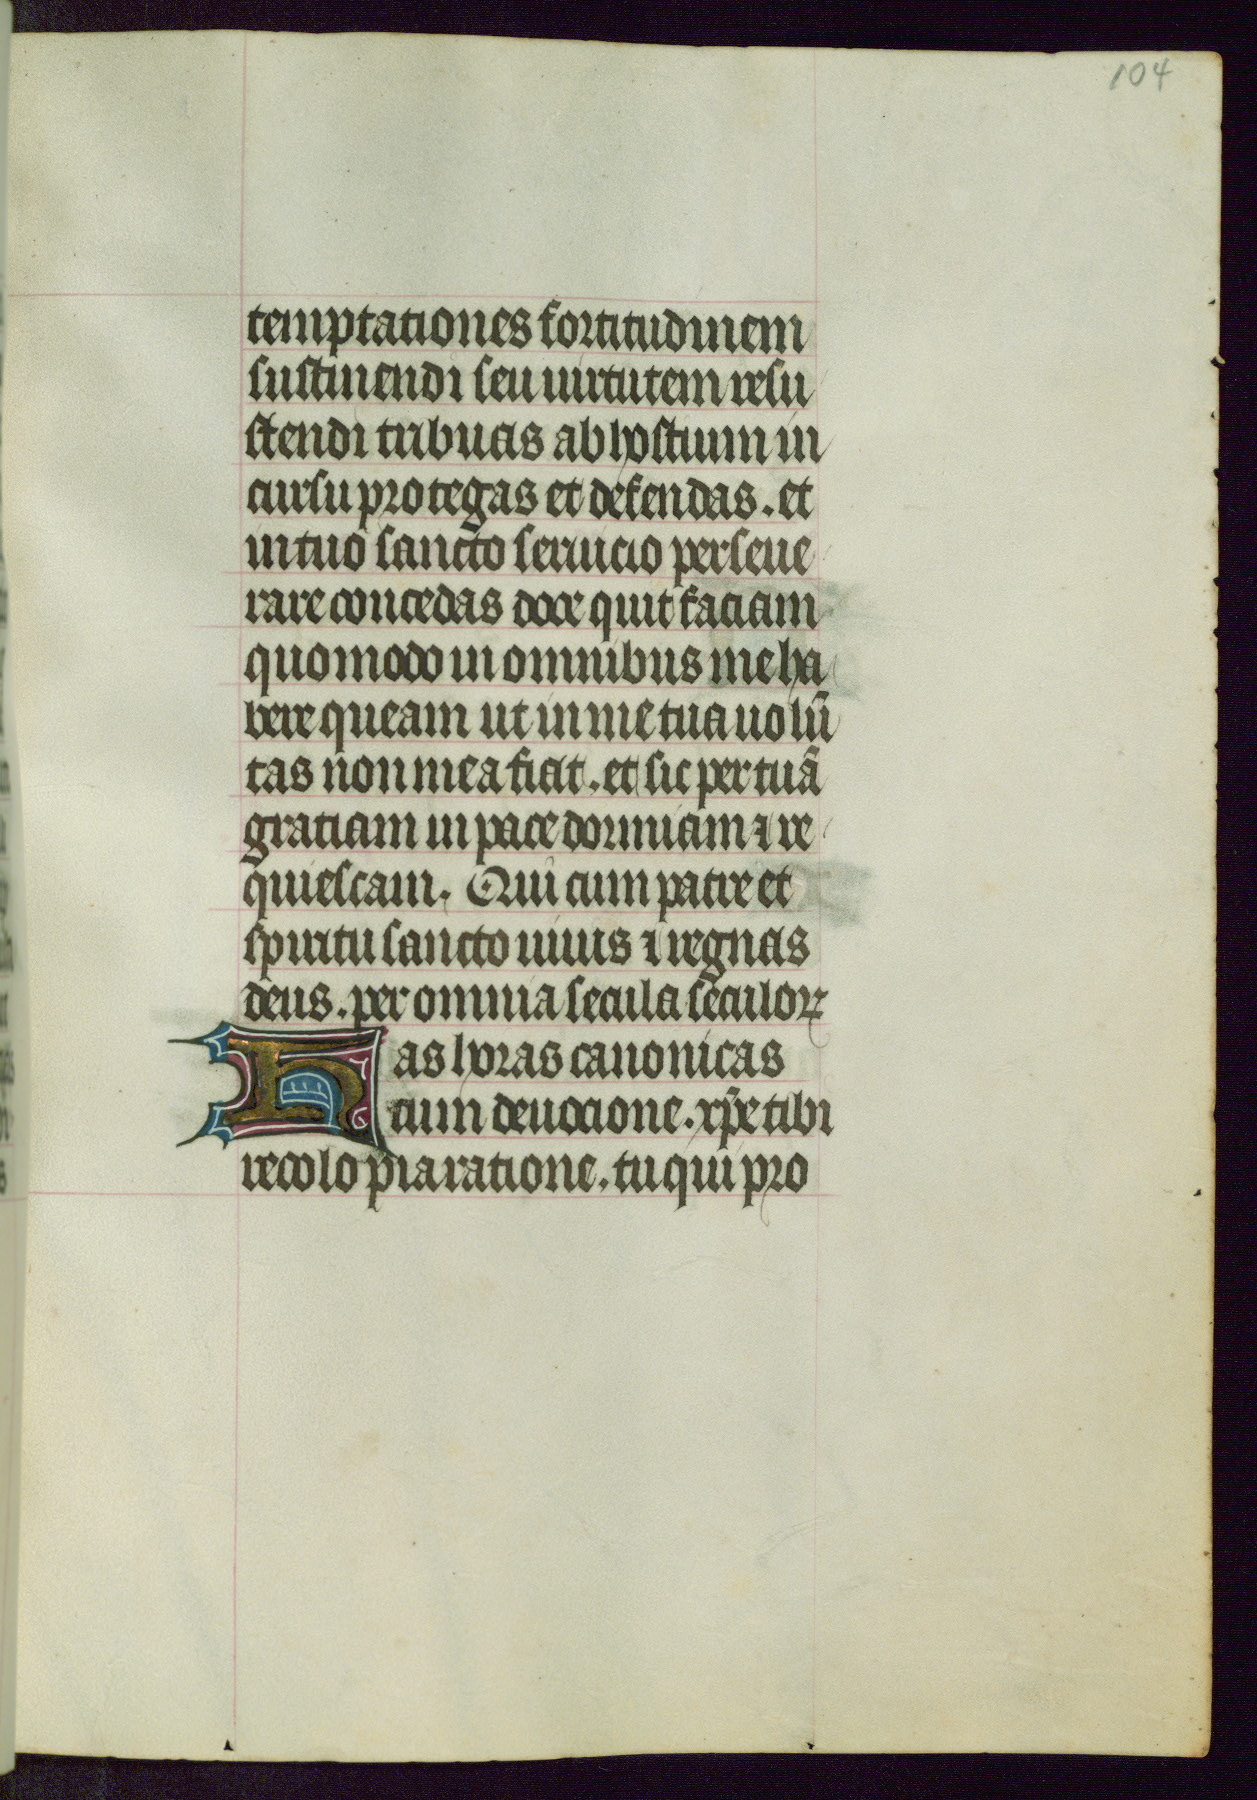 104
temptationes fortitudinem
sustinendi seu uirtutem resu
stendi tribuas ab hostium in
cursu protegas et defendas. et
in tuo sancto seruicio perseue
rare concedas doce quit faciam
quomodo in omnibus me ha
bere queam ut in me tua uolū
tas non mea fiat. et sic per tuā
gratiam in pace dormiam ⁊ re
quiescam. Qui cum patre et
spiritu sancto uiuis ⁊ regnas
deus. per omnia secula seculoꝝ
Has horas canonicas
cum deuocione. xp̄e tibi
recolo pia ratione. tu qui pro